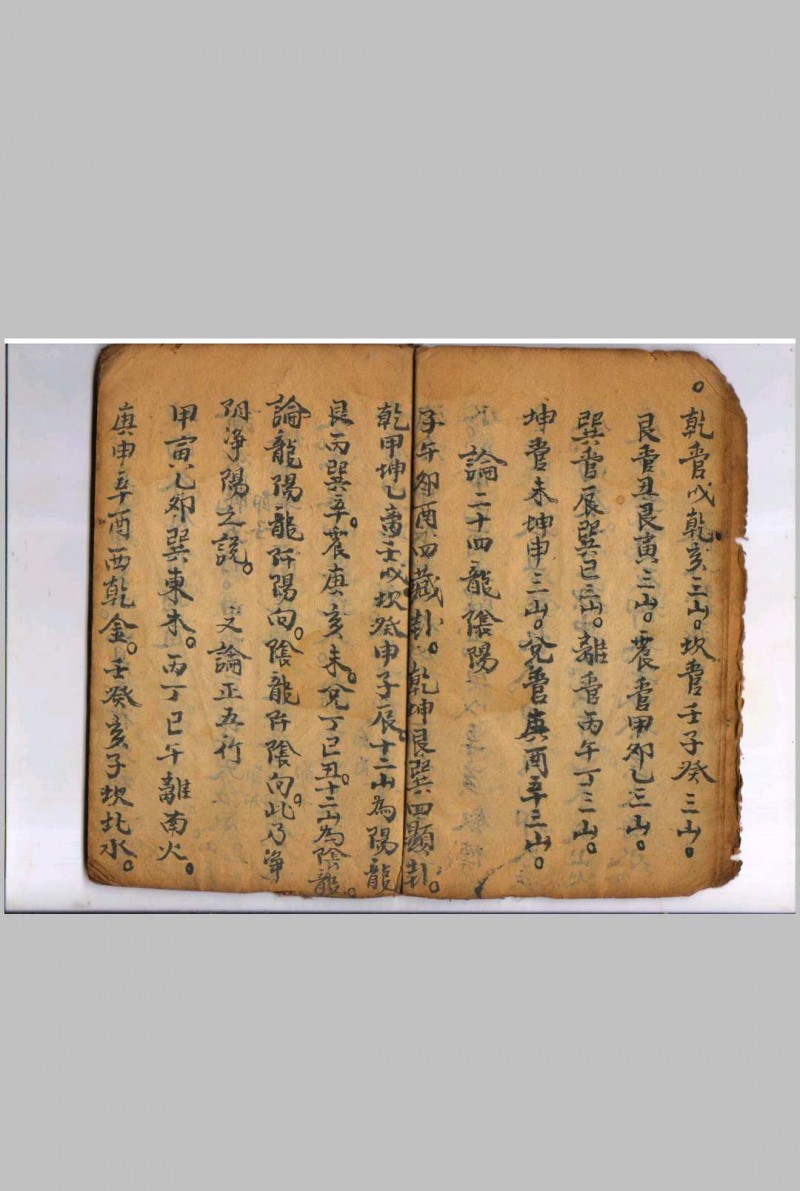 乾管戌乾亥三山。坎管壬子癸三山。
艮管丑艮寅三山。震管甲卯乙三山。
巽管辰巽巳三山。離管丙午丁三山。
坤管未坤申三山。兌管庚酉辛三山。
論二十四龍陰陽
子午卯酉四藏卦。乾坤艮巽四顯卦。
乾甲坤乙离壬戌坎癸申子辰。十二山為陽龍
艮丙巽辛。震庚亥未。兌丁巳丑。十二山為陰龍。
論龍陽龍阡陽向。陰龍阡陰向。此乃淨
阴淨陽之說。 又論正五行
甲寅乙卯巽東木。丙丁巳午離南火。
庚申辛酉西乾金。壬癸亥子坎北水。